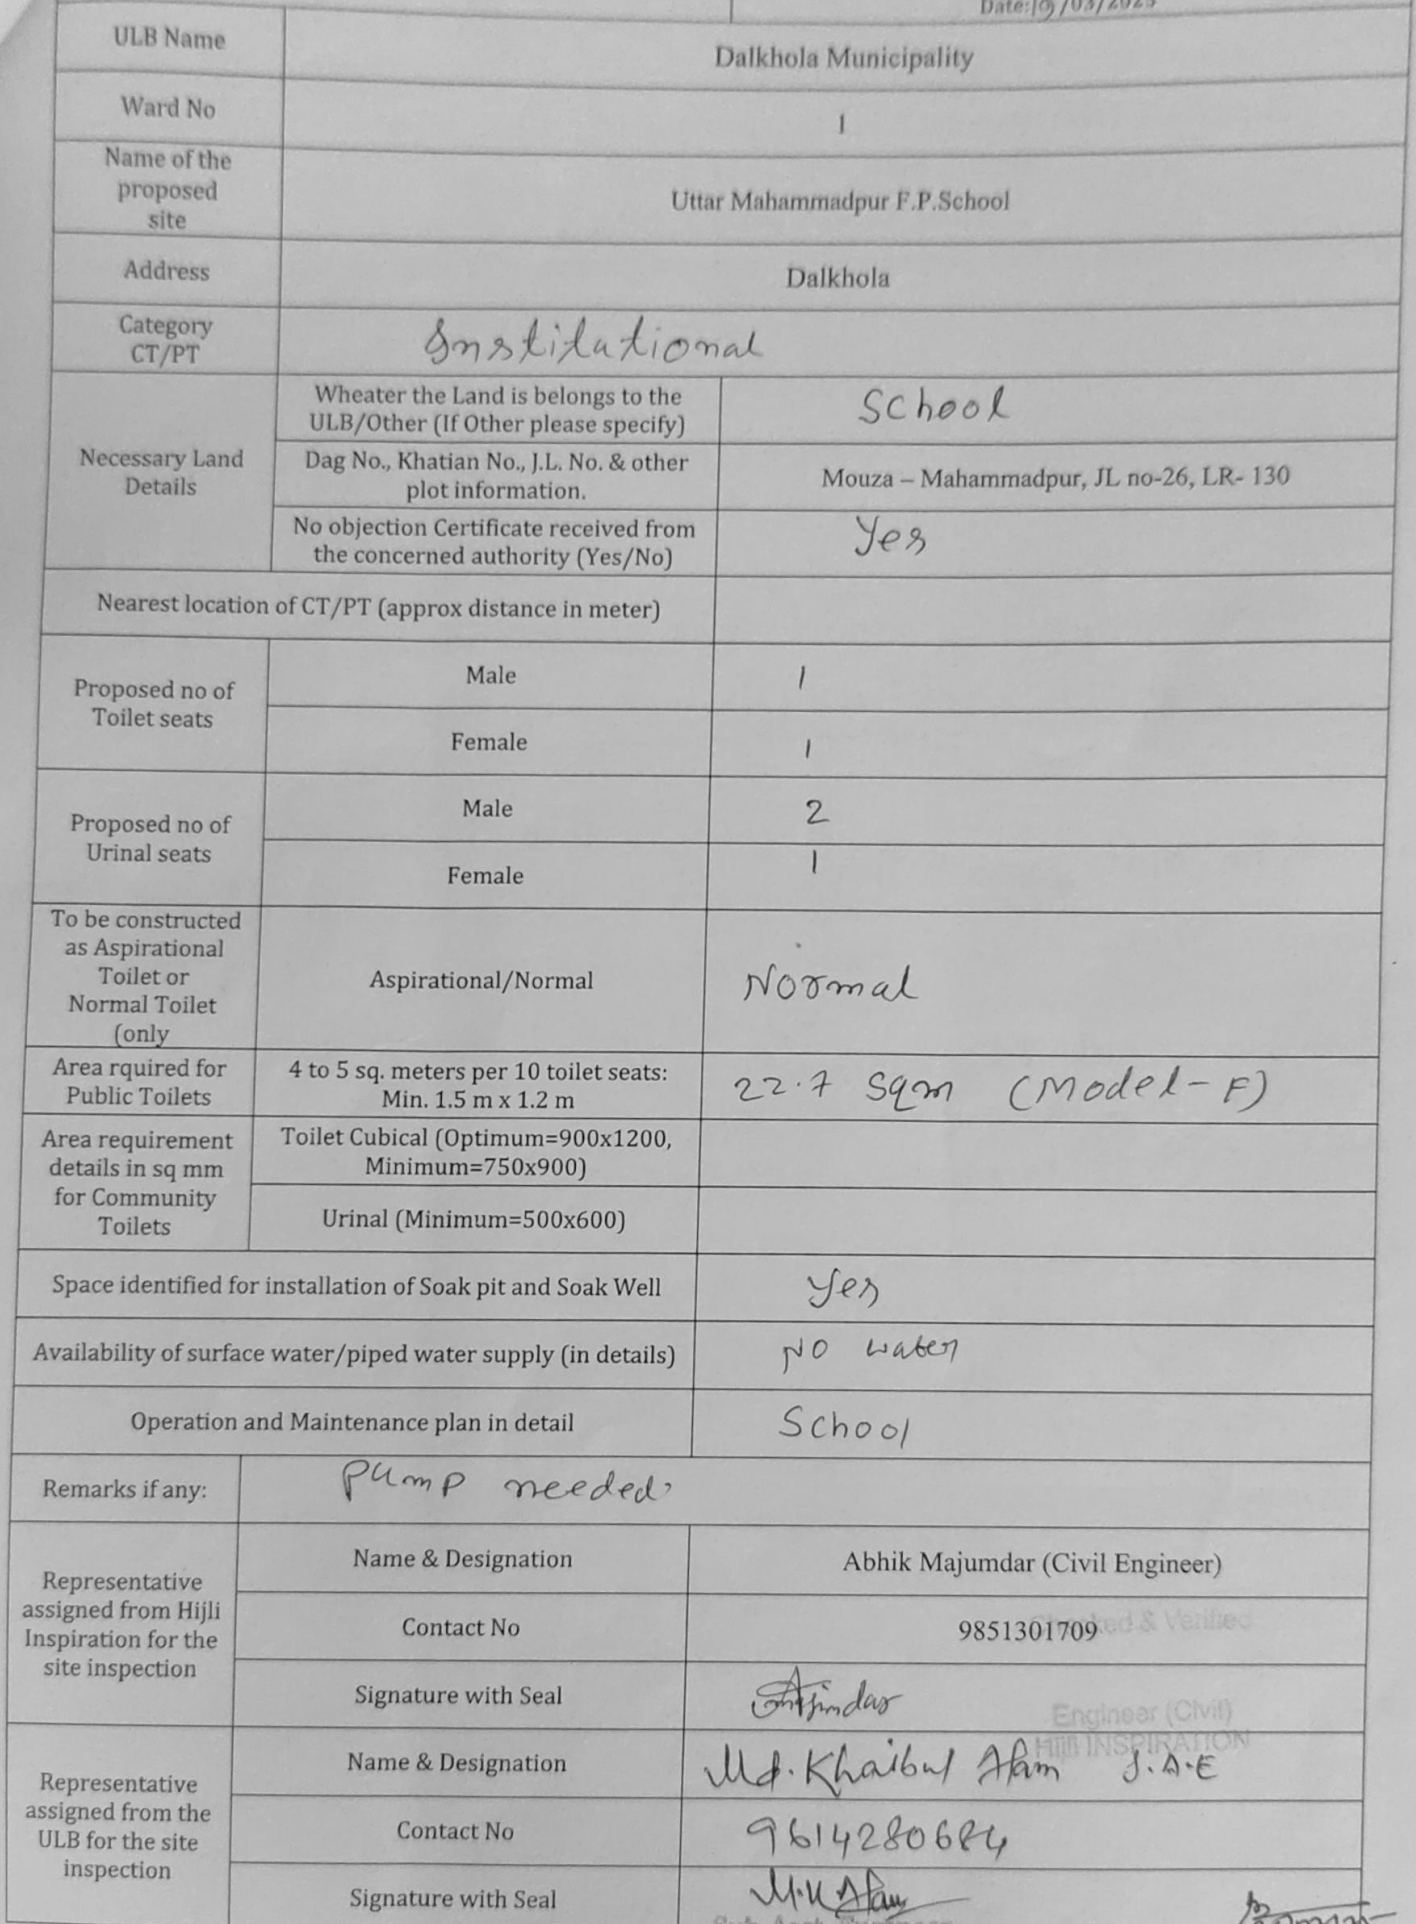 Date:19/03/2025
ULB Name
Dalkhola Municipality
Ward No
1
Name of the
proposed
site
Uttar Mahammadpur F.P.School
Address
Dalkhola
Category
CT/PT
Institutional
Necessary Land
Details
Wheater the Land is belongs to the
ULB/Other (If Other please specify)
School
Dag No., Khatian No., J.L. No. & other
plot information.
Mouza – Mahammadpur, JL no-26, LR- 130
No objection Certificate received from
the concerned authority (Yes/No)
Yes
Nearest location of CT/PT (approx distance in meter)
Proposed no of
Toilet seats
Male
1
Female
1
Proposed no of
Urinal seats
Male
2
Female
1
To be constructed
as Aspirational
Toilet or
Normal Toilet
(only
Aspirational/Normal
Normal
Area rquired for
Public Toilets
4 to 5 sq. meters per 10 toilet seats:
Min. 1.5 m x 1.2 m
22.7 Sqm (Model-F)
Area requirement
details in sq mm
for Community
Toilets
Toilet Cubical (Optimum=900x1200,
Minimum=750x900)
Urinal (Minimum=500x600)
Space identified for installation of Soak pit and Soak Well
Yes
Availability of surface water/piped water supply (in details)
No water
Operation and Maintenance plan in detail
School
Remarks if any:
Pump needed.
Representative
assigned from Hijli
Inspiration for the
site inspection
Name & Designation
Abhik Majumdar (Civil Engineer)
Contact No
9851301709
Checked & Verified
Signature with Seal
Engineer (Civil)
Hijli INSPIRATION
Representative
assigned from the
ULB for the site
inspection
Name & Designation
Md. Khaibul Alam S.A.E
Contact No
9614280684
Signature with Seal
M.K Alam